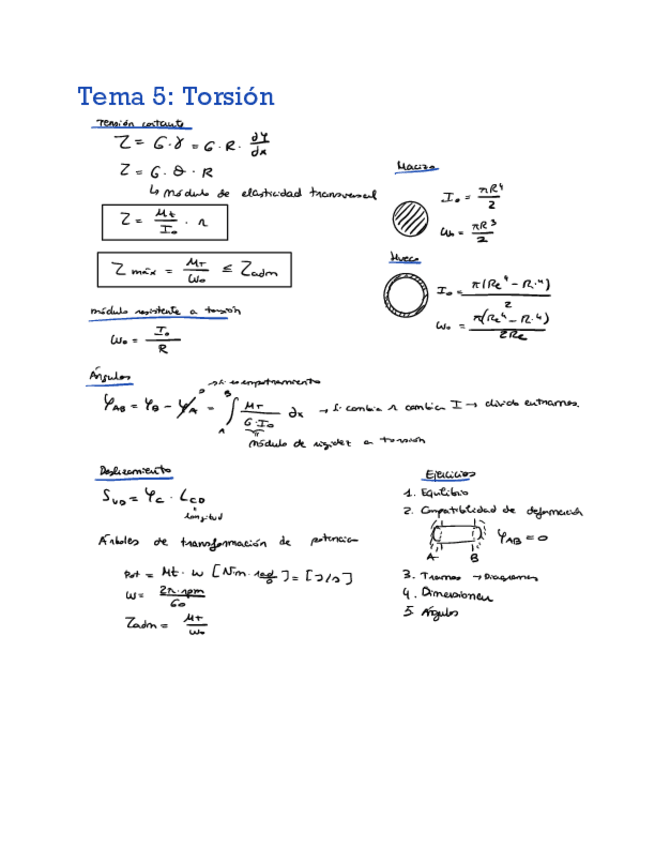 Tema 5: Torsión
Tensión cortante
Z = G·γ = G·R· ∂φ/∂x
Z = G·θ·R
↳ módulo de elasticidad transversal
Z = Mt/I₀ · r
Z máx = MT/W₀ ≤ Zadm
Macizo
I₀ = πR⁴/2
W₀ = πR³/2
Hueco
I₀ = π(Re⁴ - Ri⁴)/2
W₀ = π(Re⁴ - Ri⁴)/2Re
módulo resistente a torsión
W₀ = I₀/R
Ángulos
→ si empotramiento
φAB = φB - φA = ∫ MT/G·I₀ ∂x → Si cambia r cambia I → divido en tramos.
módulo de rigidez a torsión
Deslizamiento
= φC · LCD
longitud
Árboles de transformación de potencia
Pot = Mt · W [N·m · rad/s] = [J/s]
W = 2π·rpm/60
Zadm = MT/W₀
Ejercicios
1. Equilibrio
2. Compatibilidad de deformación
φAB = 0
A B
3. Tramos → Diagramas
4. Dimensionar
5. Ángulos